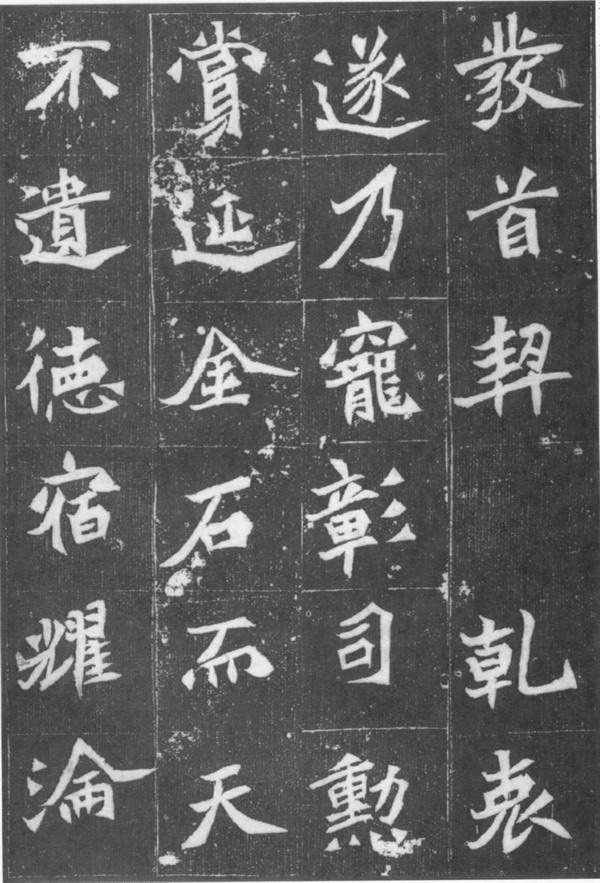 發首契　乾衷
遂乃寵彰司勳
賞延金石而天
不遺徳宿耀淪